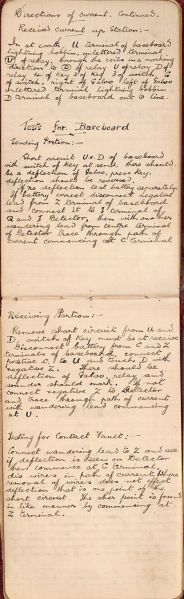 Directions of current. Continued.
Received current up Station:-
In at earth U terminal of baseboard
lightning bobbin, unlettered terminal
U of relay through the coils in a marking
direction to D of relay U of relay D of
relay to K of key D of key D of switch
of switch, right of Galvo left of Galvo
unlettered terminal lightning bobbin
D terminal of baseboard out to line
Tests for Baseboard
Sending Portion:-
Short circuit U & D of baseboard
with switch of key at send, there should
be a deflection of Galvo, press key,
deflection should be reversed.
If no deflection test battery separately
If battery correct disconnect negative
lead from Z terminal of baseboard
and connect it to I terminal of
Q and I Detector, then with one
wandering lead from centre terminal
of Detector trace through path of
current commencing at C terminal
Receiving Portion:-
Remove short circuit from U and
D, switch of key must be at receive
Disconnect battery from C and Z
terminals of baseboard, connect
positive C, to U and touch D with
negative Z. There should be
a deflection of Galvo, relay and
sounder should mark. If not
connect negative Z to Detector
and trace through path of current
with wandering lead commencing
at U.
Testing for Contact Fault:-
Connect wandering lead to Z and see
if deflection is seen on Detector
then commence at C terminal,
dis wires in path of current, where
removal of wires does not effect
deflection that is one point of the
short circuit. The other point is found
in like manner by commencing at
Z terminal.